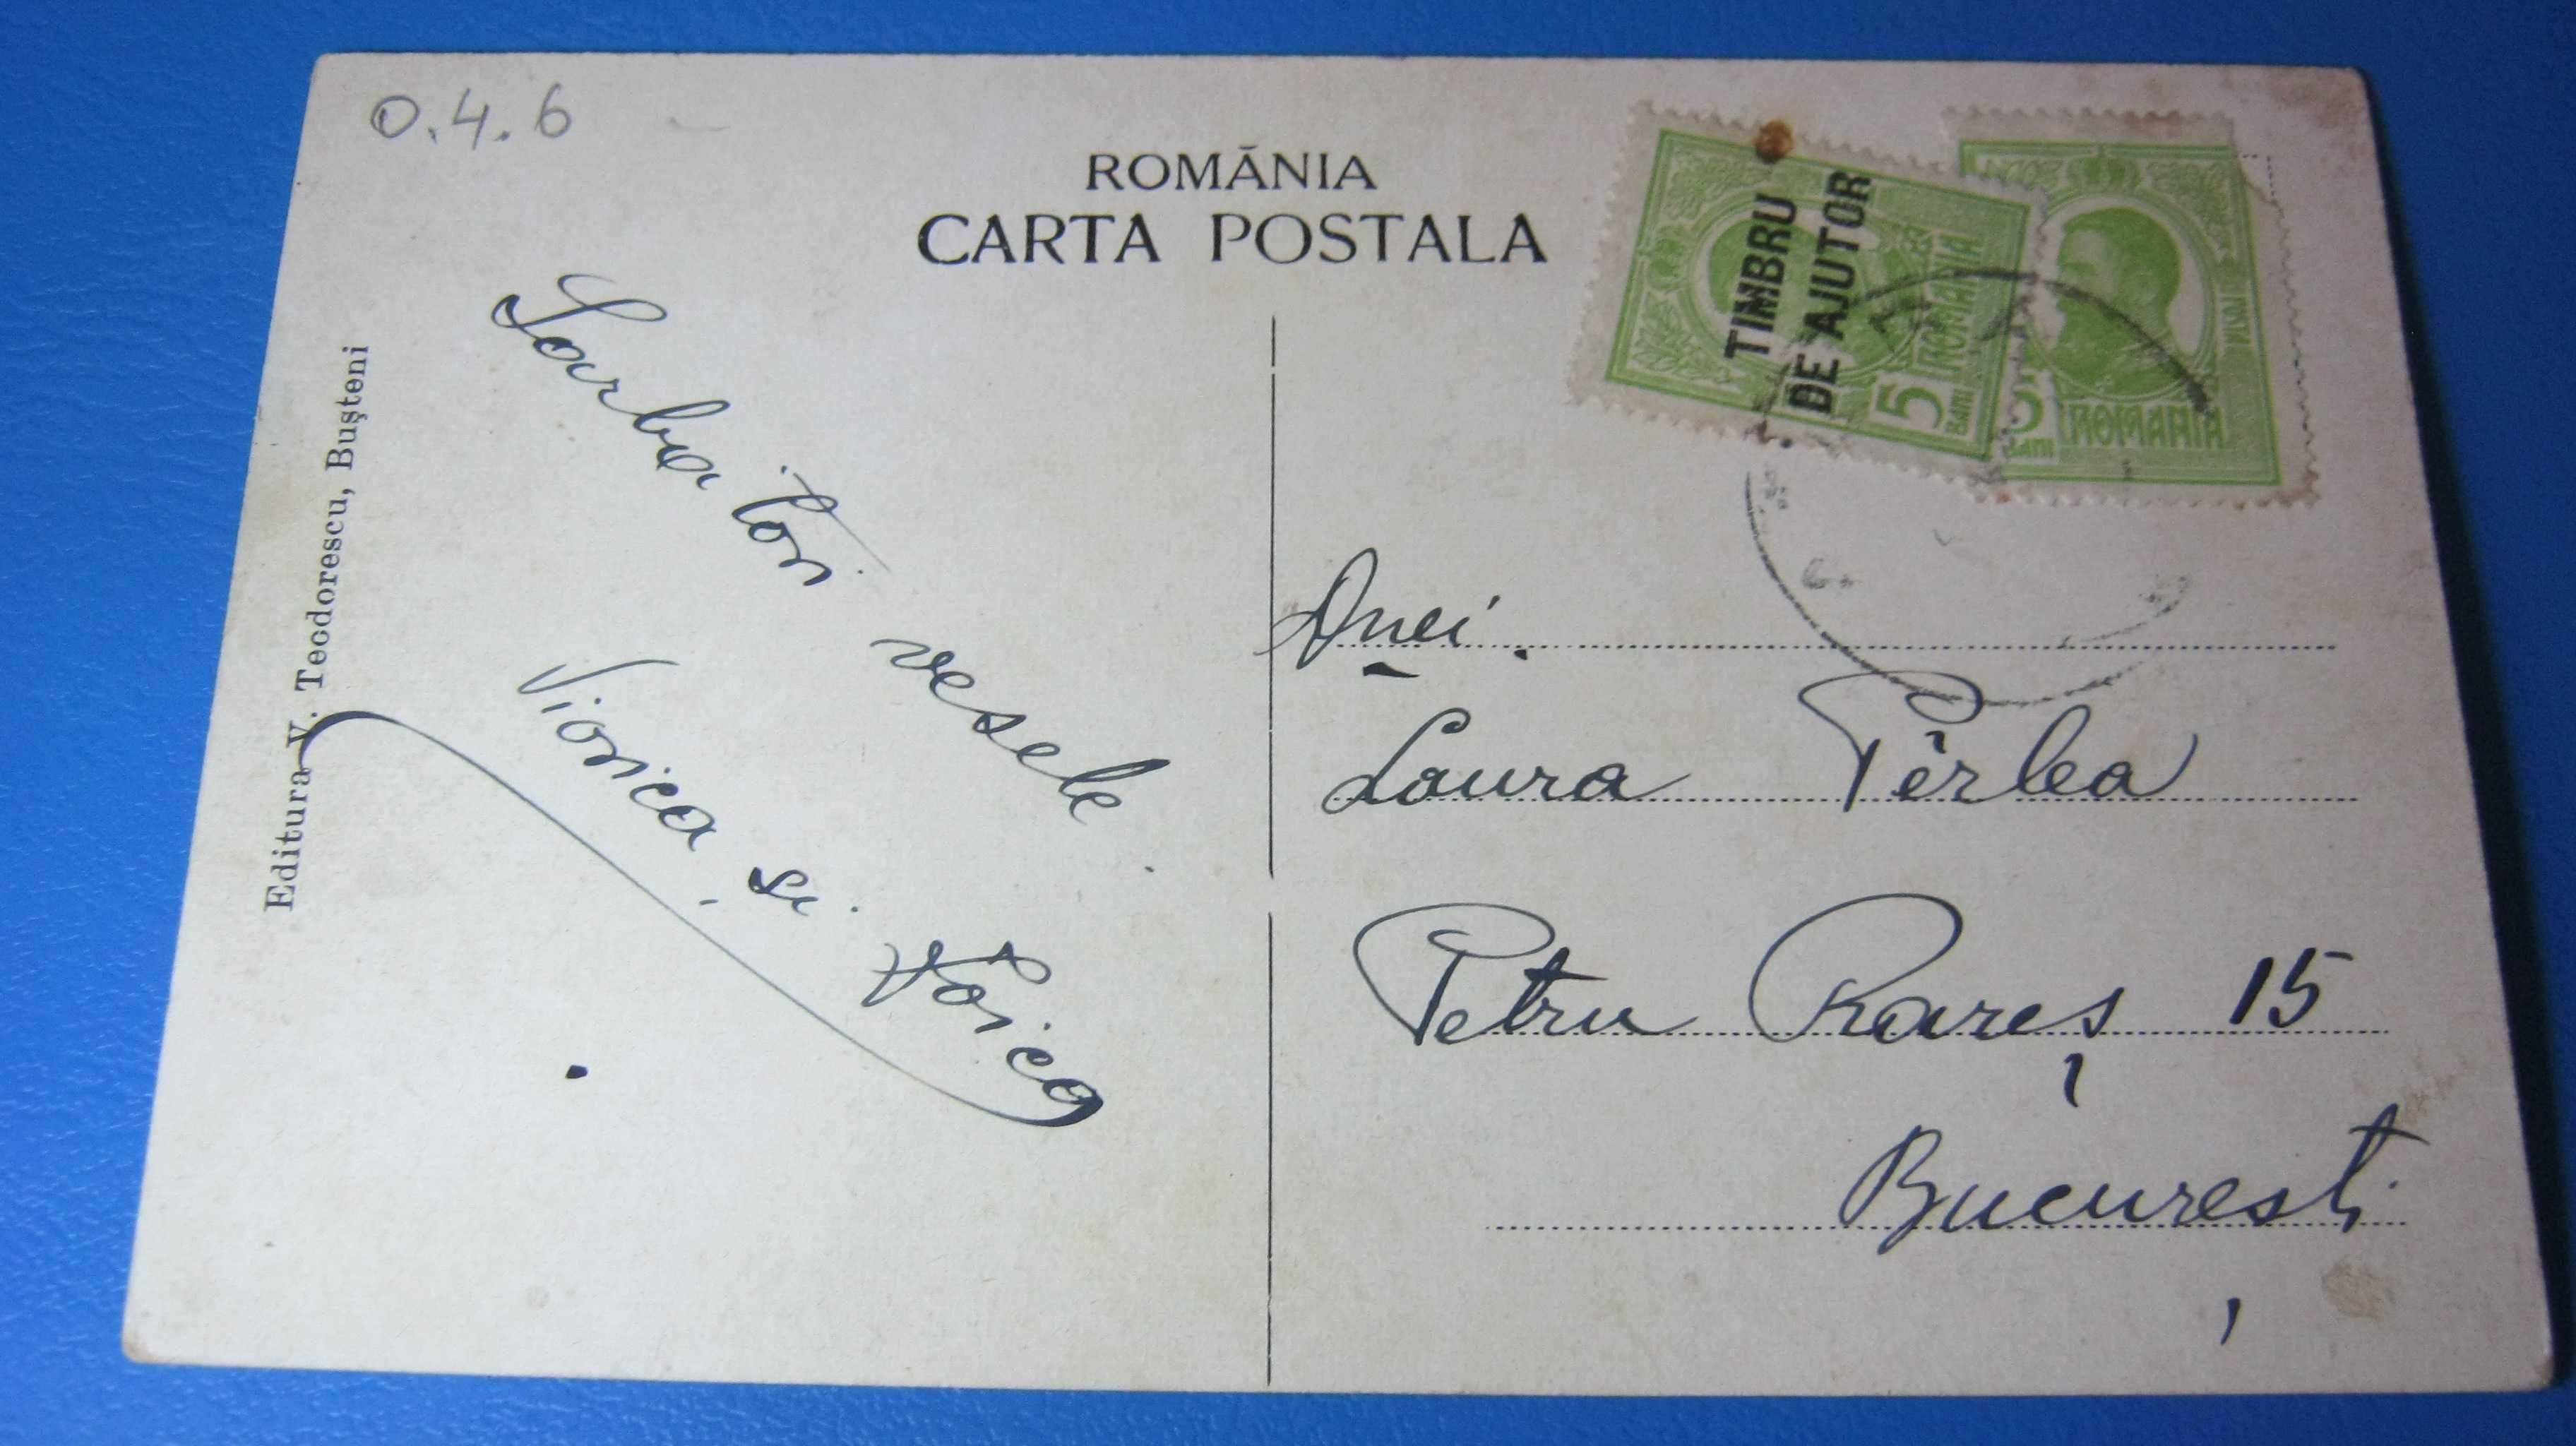 0.4.6
ROMÂNIA
CARTA POSTALA
TIMBRU
DE AJUTOR
5 BANI ROMANIA
5 BANI ROMANIA
Editura V. Teodorescu, Bușteni
Sarbatori vesele
Viorica și Foica
Dnei
Laura Pêrlea
Petru Rareș 15
București